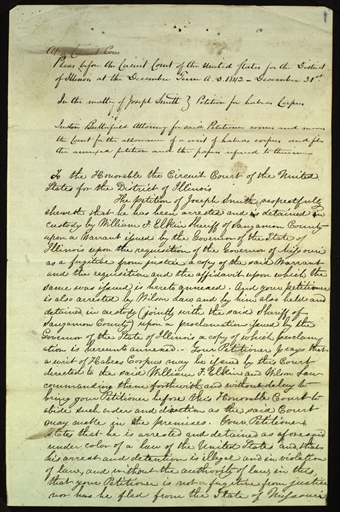 At a Circuit Court
Pleas before the Circuit Court of the United States for the District
of Illinois at the December Term A.D. 1842 – December 31st
In the matter of Joseph Smith } Petition for habeas Corpus
Justin Butterfield Attorney for said Petitioner comes and moves
the Court for the allowance of a writ of habeas corpus and files
the annexed petition and the papers referred to therein
To the Honorable the Circuit Court of the United
States for the District of Illinois
The petition of Joseph Smith respectfully
sheweth that he has been arrested and is detained in
custody by William F. Elkin Sheriff of Sangamon County
upon a Warrant issued by the Governor of the State of
Illinois upon the requisition of the Governor of Missouri
as a fugitive from justice a copy of the said Warrant
and the requisition and the affidavit upon which the
same was issued is hereto annexed. And your petitioner
is also arrested by Wilson Law and by him also held and
detained in custody (jointly with the said Sheriff of
Sangamon County) upon a proclamation issued by the
Governor of the State of Illinois a copy of which proclama
tion is hereunto annexed – Your Petitioner prays that
a writ of Habeas Corpus may be issued by this Court
directed to the said William F. Elkin and Wilson Law
commanding them forthwith and without delay to
bring your Petitioner before this Honorable Court to
abide such order and direction as the said Court
may make in the premises. Your Petitioner
states that he is arrested and detained as aforesaid
under color of a law of the United States and that
his arrest and detention is illegal and in violation
of law, and without the authority of law in this,
that your Petitioner is not a fugitive from justice
nor has he fled from the State of Missouri